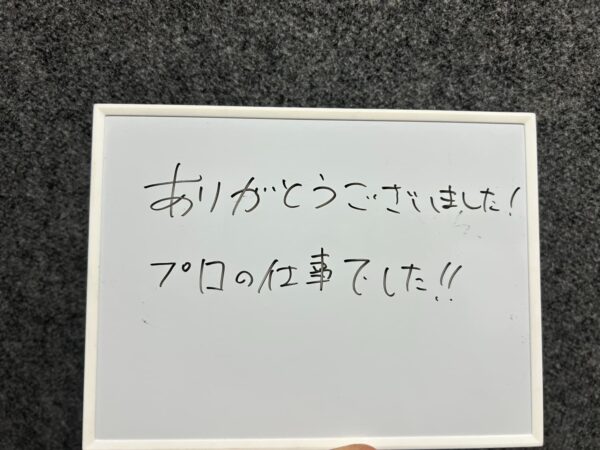 ありがとうございました!
プロの仕事でした!!